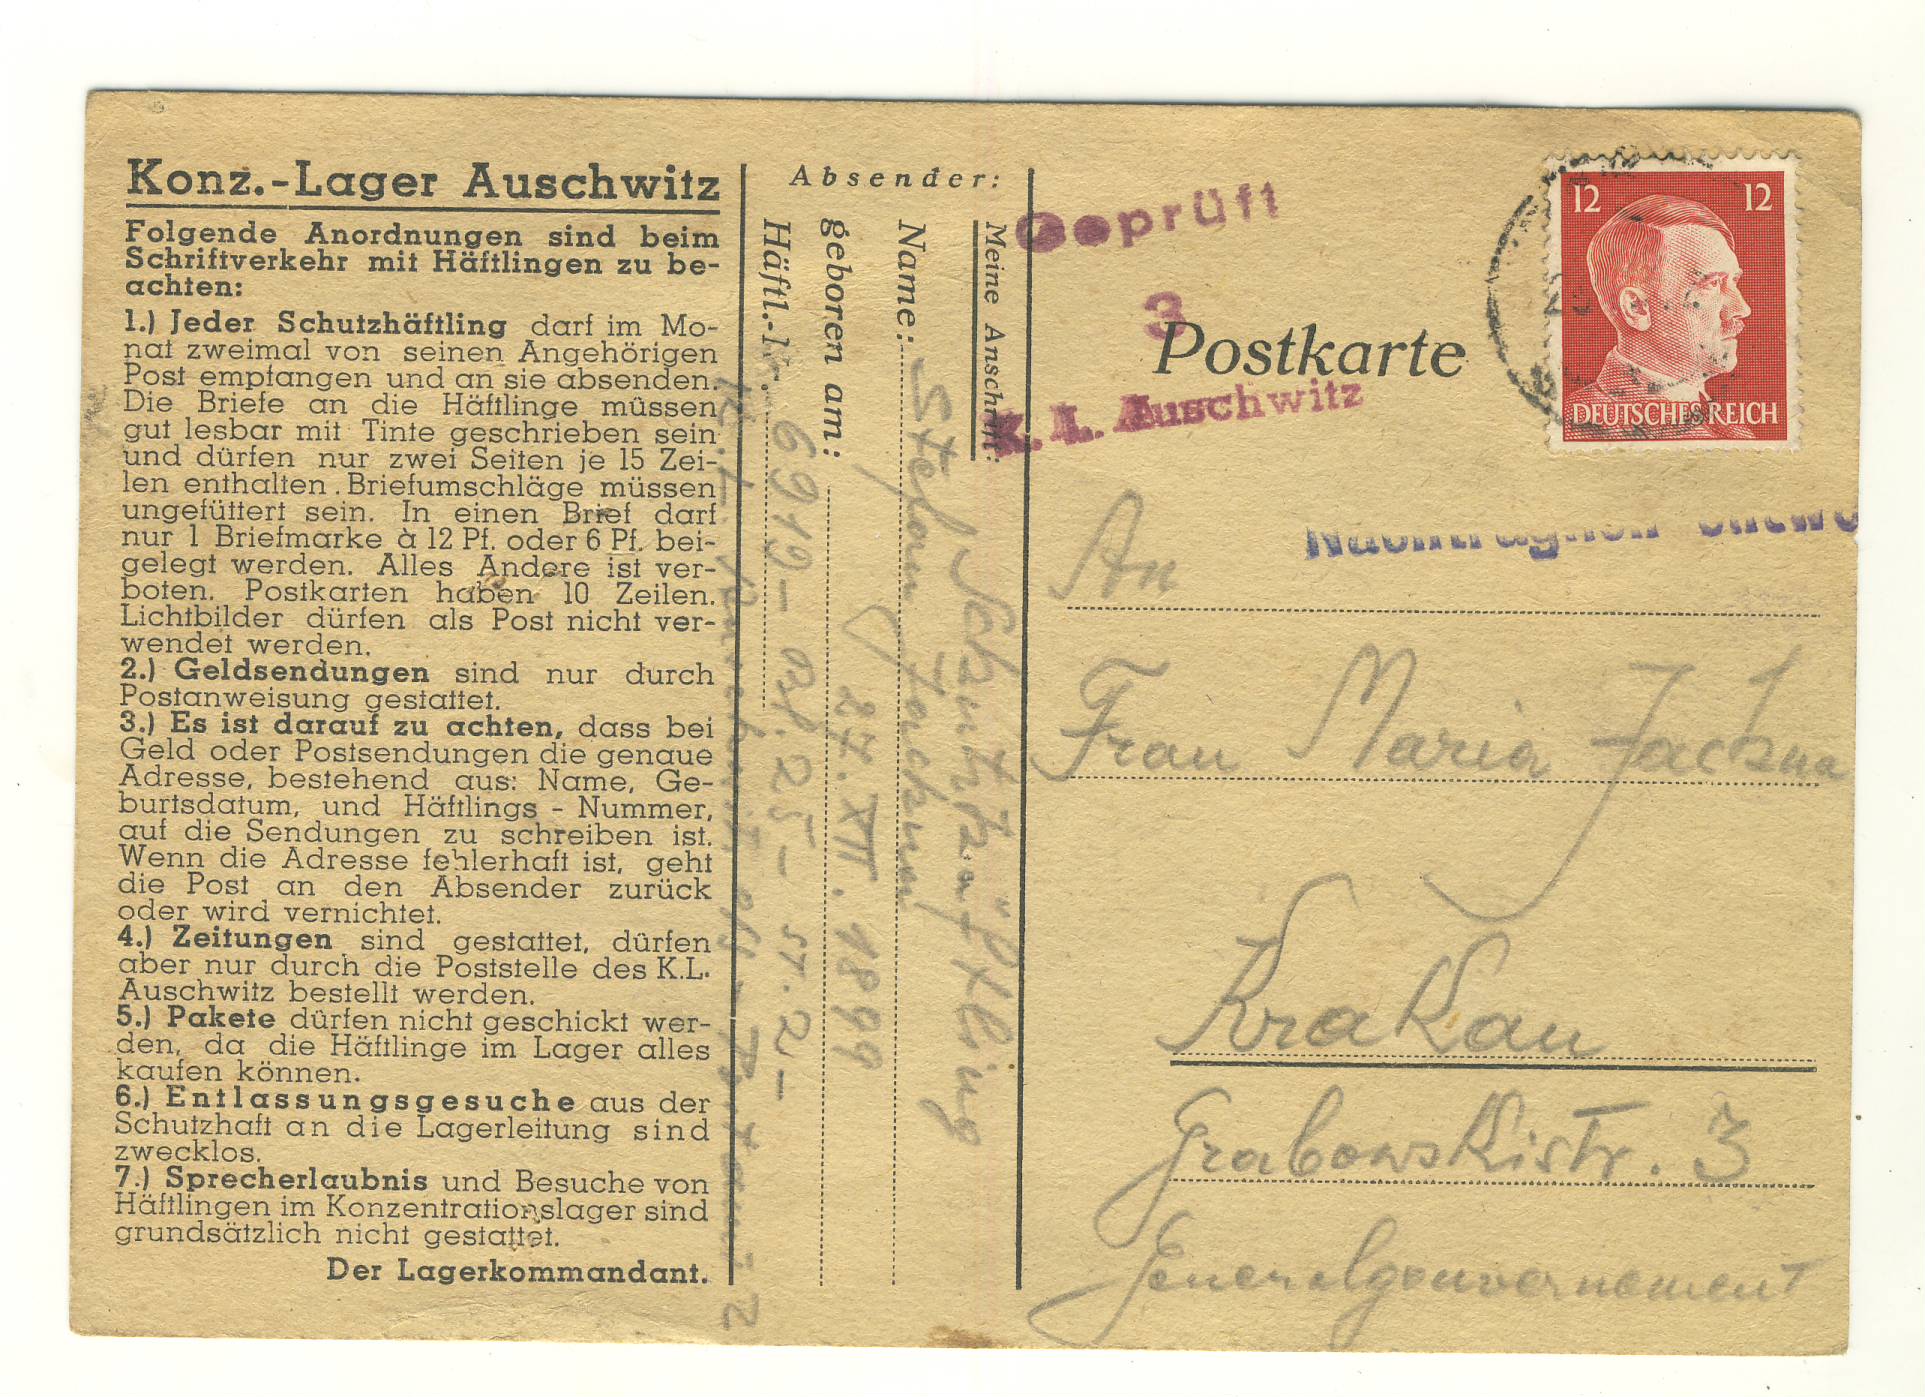 Konz.-Lager Auschwitz
Folgende Anordnungen sind beim
Schriftverkehr mit Häftlingen zu be-
achten:
1.) Jeder Schutzhäftling darf im Mo-
nat zweimal von seinen Angehörigen
Post empfangen und an sie absenden.
Die Briefe an die Häftlinge müssen
gut lesbar mit Tinte geschrieben sein
und dürfen nur zwei Seiten je 15 Zei-
len enthalten. Briefumschläge müssen
ungefüttert sein. In einen Brief darf
nur 1 Briefmarke à 12 Pf. oder 6 Pf. bei-
gelegt werden. Alles Andere ist ver-
boten. Postkarten haben 10 Zeilen.
Lichtbilder dürfen als Post nicht ver-
wendet werden.
2.) Geldsendungen sind nur durch
Postanweisung gestattet.
3.) Es ist darauf zu achten, dass bei
Geld oder Postsendungen die genaue
Adresse, bestehend aus: Name, Ge-
burtsdatum, und Häftlings - Nummer,
auf die Sendungen zu schreiben ist.
Wenn die Adresse fehlerhaft ist, geht
die Post an den Absender zurück
oder wird vernichtet.
4.) Zeitungen sind gestattet, dürfen
aber nur durch die Poststelle des K.L.
Auschwitz bestellt werden.
5.) Pakete dürfen nicht geschickt wer-
den, da die Häftlinge im Lager alles
kaufen können.
6.) Entlassungsgesuche aus der
Schutzhaft an die Lagerleitung sind
zwecklos.
7.) Sprecherlaubnis und Besuche von
Häftlingen im Konzentrationslager sind
grundsätzlich nicht gestattet.
Der Lagerkommandant.
Absender:
Meine Anschrift:
Schutzhäftling
Name: Stefan
geboren am: 27. XII. 1899
Häftl.- 6919 - Bl. 25 - St. 2 -
K.L. Auschwitz
Geprüft
3
K. L. Auschwitz
Postkarte
12 12
DEUTSCHES REICH
An
Frau Maria
Krakau
Grabowskistr. 3
Generalgouvernement